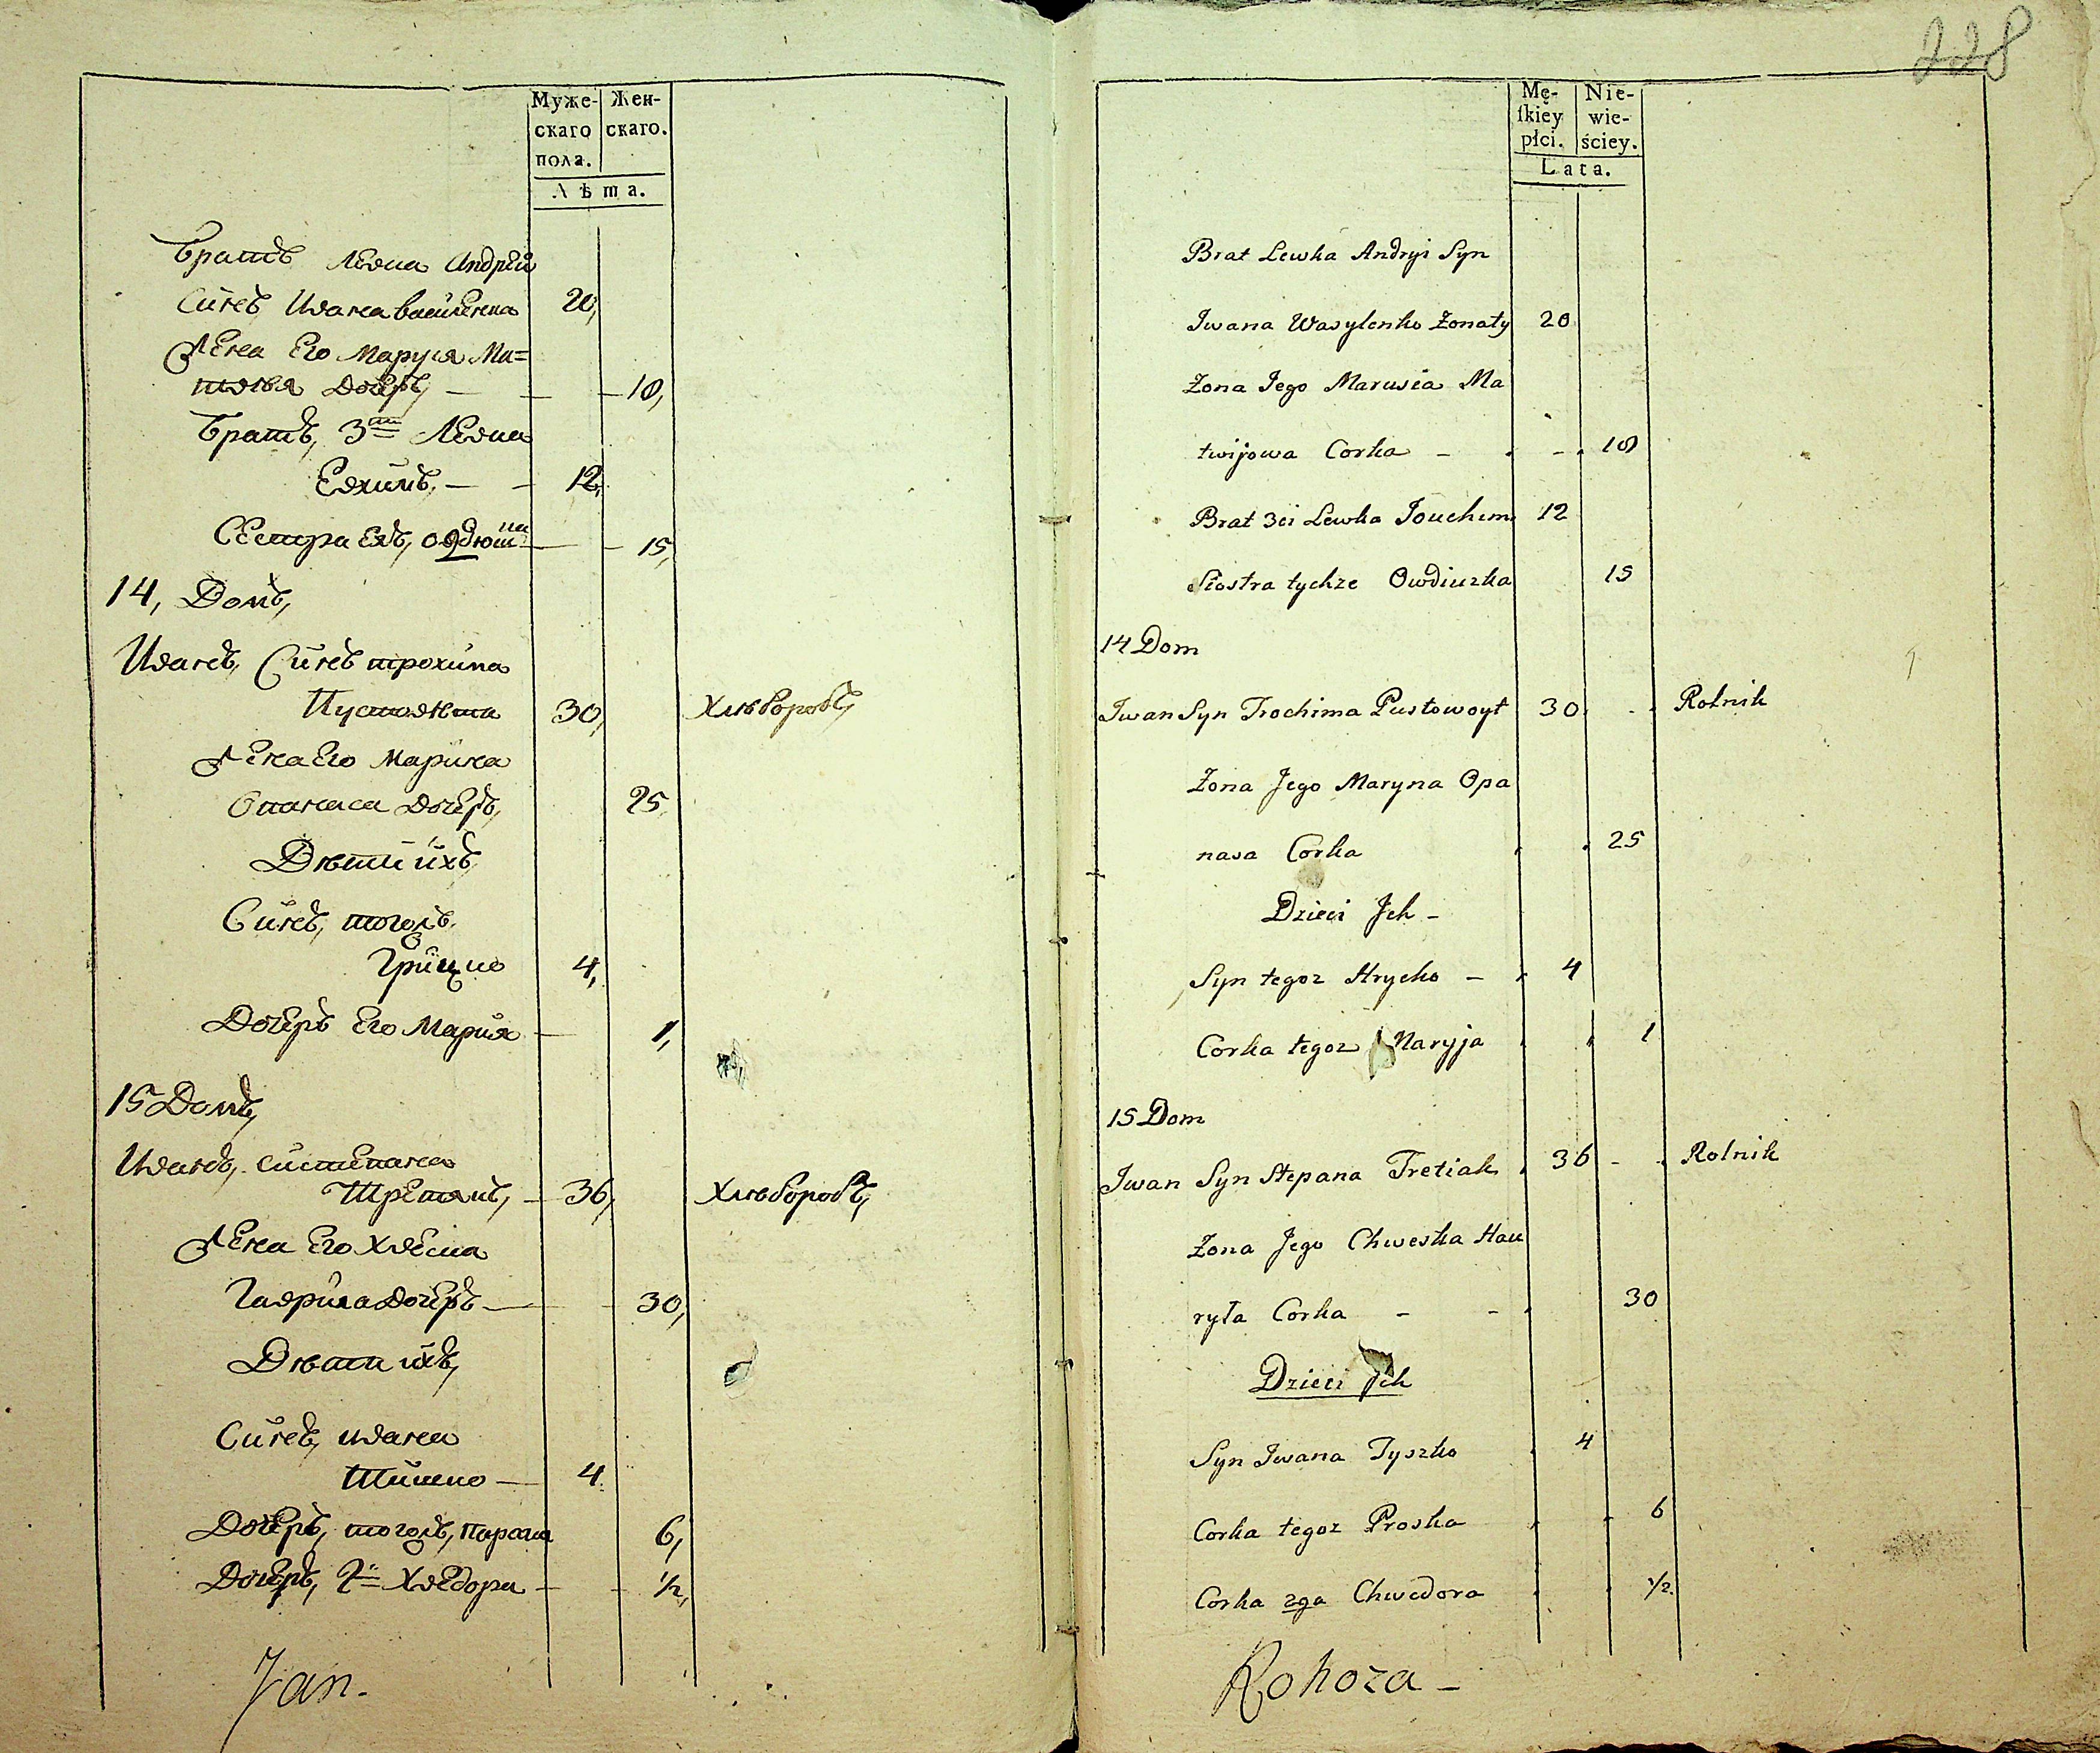 Муже-
скаго
пола.
Жен-
скаго.
Лѣта.
братъ Левка Андрѣй
Синъ Ивана василенка 20,
Жена Его Маруся Ма=
твѣя Дочеръ — — — 18,
братъ, 3тй Левка
Евхимъ, — — 12,
Сестра Ехъ, овдюшка — — 15,
14, Домъ,
Иванъ, Синъ трохима
Пустовѣта 30, Хлѣборобъ,
Жена Его Марина
Опанаса Дочеръ, 25,
Дѣти ихъ,
Синъ, тогожъ
Грицко 4,
Дочеръ Его Мария — 1,
15 Домъ,
Иванъ, си степана
Третякъ, — 36, Хлѣборобъ,
Жена Его Хвеска
Гаврила Дочеръ — — 30,
Дѣти ихъ,
Синъ, ивана
Тишко — 4
Дочеръ, тогожъ, Параска 6,
Дочеръ, 2я Хведора — — 1/2,
Jan.
228
Mę-
ſkiey
płci.
Nie-
wie-
ściey.
Lata.
Brat Lewka Andryi Syn
Iwana Wasylenko Żonaty 20
Żona Jego Marusia Ma
twijowa Corka – – 18
Brat 3ci Lewka Jouchim 12
Siostra tychże Owdiuszka 15
14 Dom
Iwan Syn Trochima Pustowoyt 30 Rolnik
Żona Jego Maryna Opa
nasa Corka 25
Dzieci Jch –
Syn tegoz Hrycko – 4
Corka tegoz Maryja 1
15 Dom
Iwan Syn Stepana Tretiak 36 – Rolnik
Żona Jego Chweska Hau
ryła Corka – – 30
Dzieci Jch
Syn Iwana Tyszko 4
Corka tegoz Proska 6
Corka 2ga Chwedora 1/2
Rohoza –